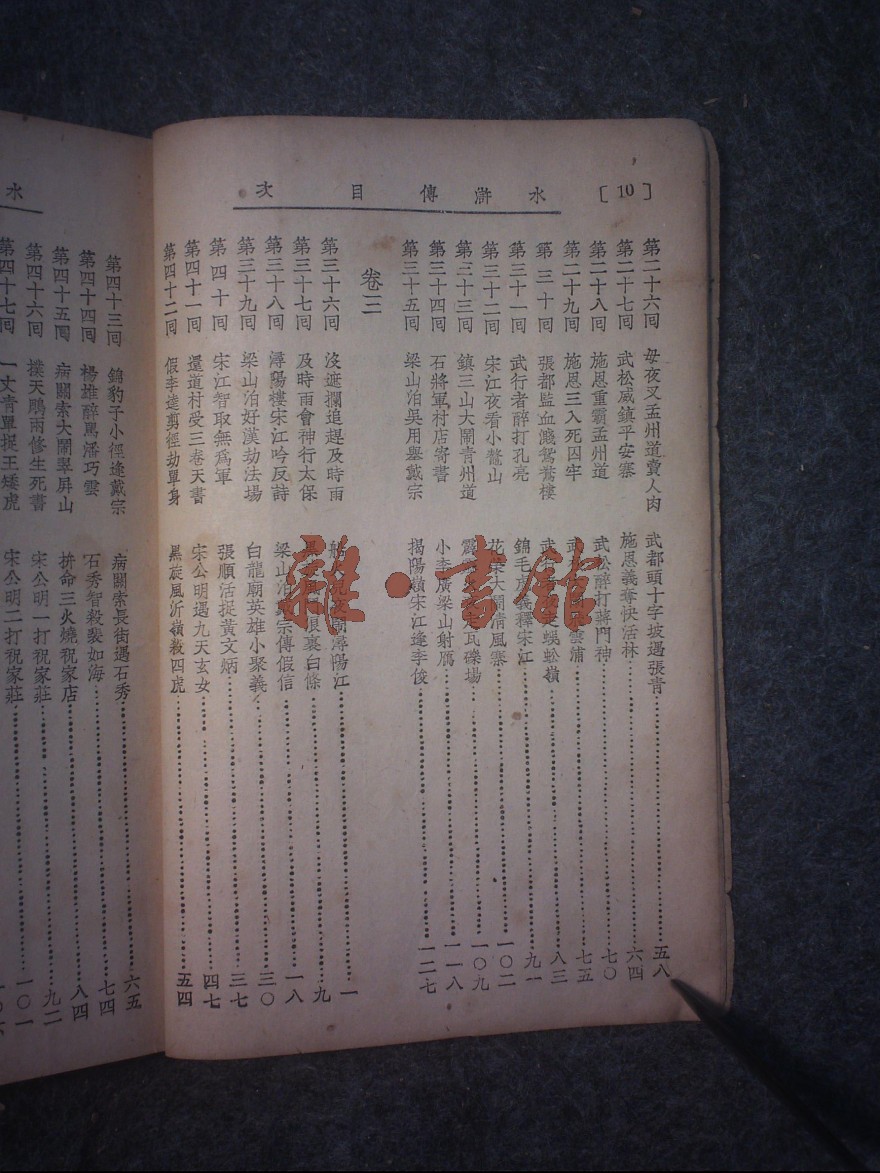 水滸傳目次
[10]
第二十六回 母夜叉孟州道賣人肉 武都頭十字坡遇張青 五八
第二十七回 武松威鎮平安寨 施恩義奪快活林 六四
第二十八回 施恩重霸孟州道 武松醉打蔣門神 七〇
第二十九回 施恩三入死囚牢 武 雲浦 七五
第三十回 張都監血濺鴛鴦樓 武行 蜈蚣嶺 八三
第三十一回 武行者醉打孔亮 錦毛虎義釋宋江 九一
第三十二回 宋江夜看小鰲山 花榮大鬧清風寨 一〇二
第三十三回 鎮三山大鬧青州道 瓦礫場 一〇九
第三十四回 石將軍村店寄書 小李廣梁山射鴈 一一八
第三十五回 梁山泊吳用舉戴宗 揭陽嶺宋江逢李俊 一二七
卷三
第三十六回 沒遮攔追趕及時雨 船 鬧潯陽江 一
第三十七回 及時雨會神行太保 黑 裏白條 九
第三十八回 潯陽樓宋江吟反詩 梁山泊戴宗傳假信 一八
第三十九回 梁山泊好漢劫法場 白龍廟英雄小聚義 三〇
第四十回 宋江智取無爲軍 張順活捉黃文炳 三七
第四十一回 還道村受三卷天書 宋公明遇九天玄女 四七
第四十二回 假李逵剪徑劫單身 黑旋風沂嶺殺四虎 五四
水
第四十三回 錦豹子小徑逢戴宗 病關索長街遇石秀 六五
第四十四回 楊雄醉罵潘巧雲 石秀智殺裴如海 七四
第四十五回 病關索大鬧翠屏山 拚命三火燒祝家店 八四
第四十六回 撲天鵰雨修生死書 宋公明一打祝家莊 九二
第四十七回 一丈青單捉王矮虎 宋公明二打祝家莊 一〇一
雜·書館